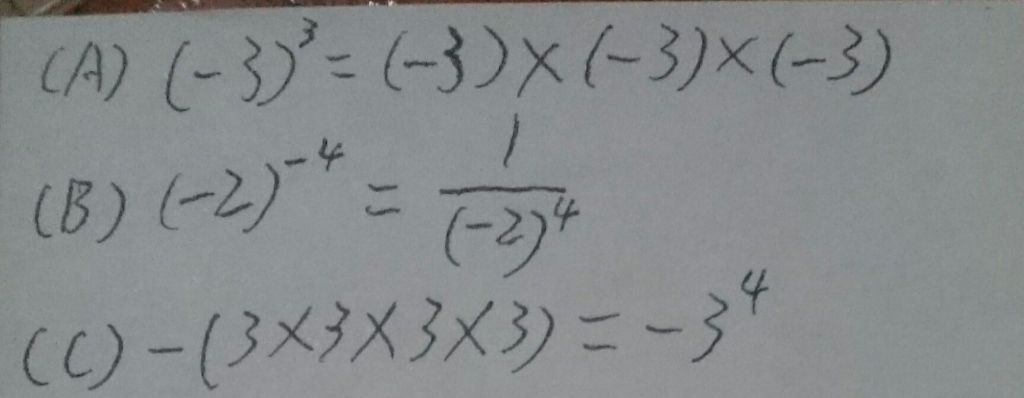 (A) (-3)³ = (-3) × (-3) × (-3)
(B) (-2)⁻⁴ = 1/(-2)⁴
(C) -(3×3×3×3) = -3⁴